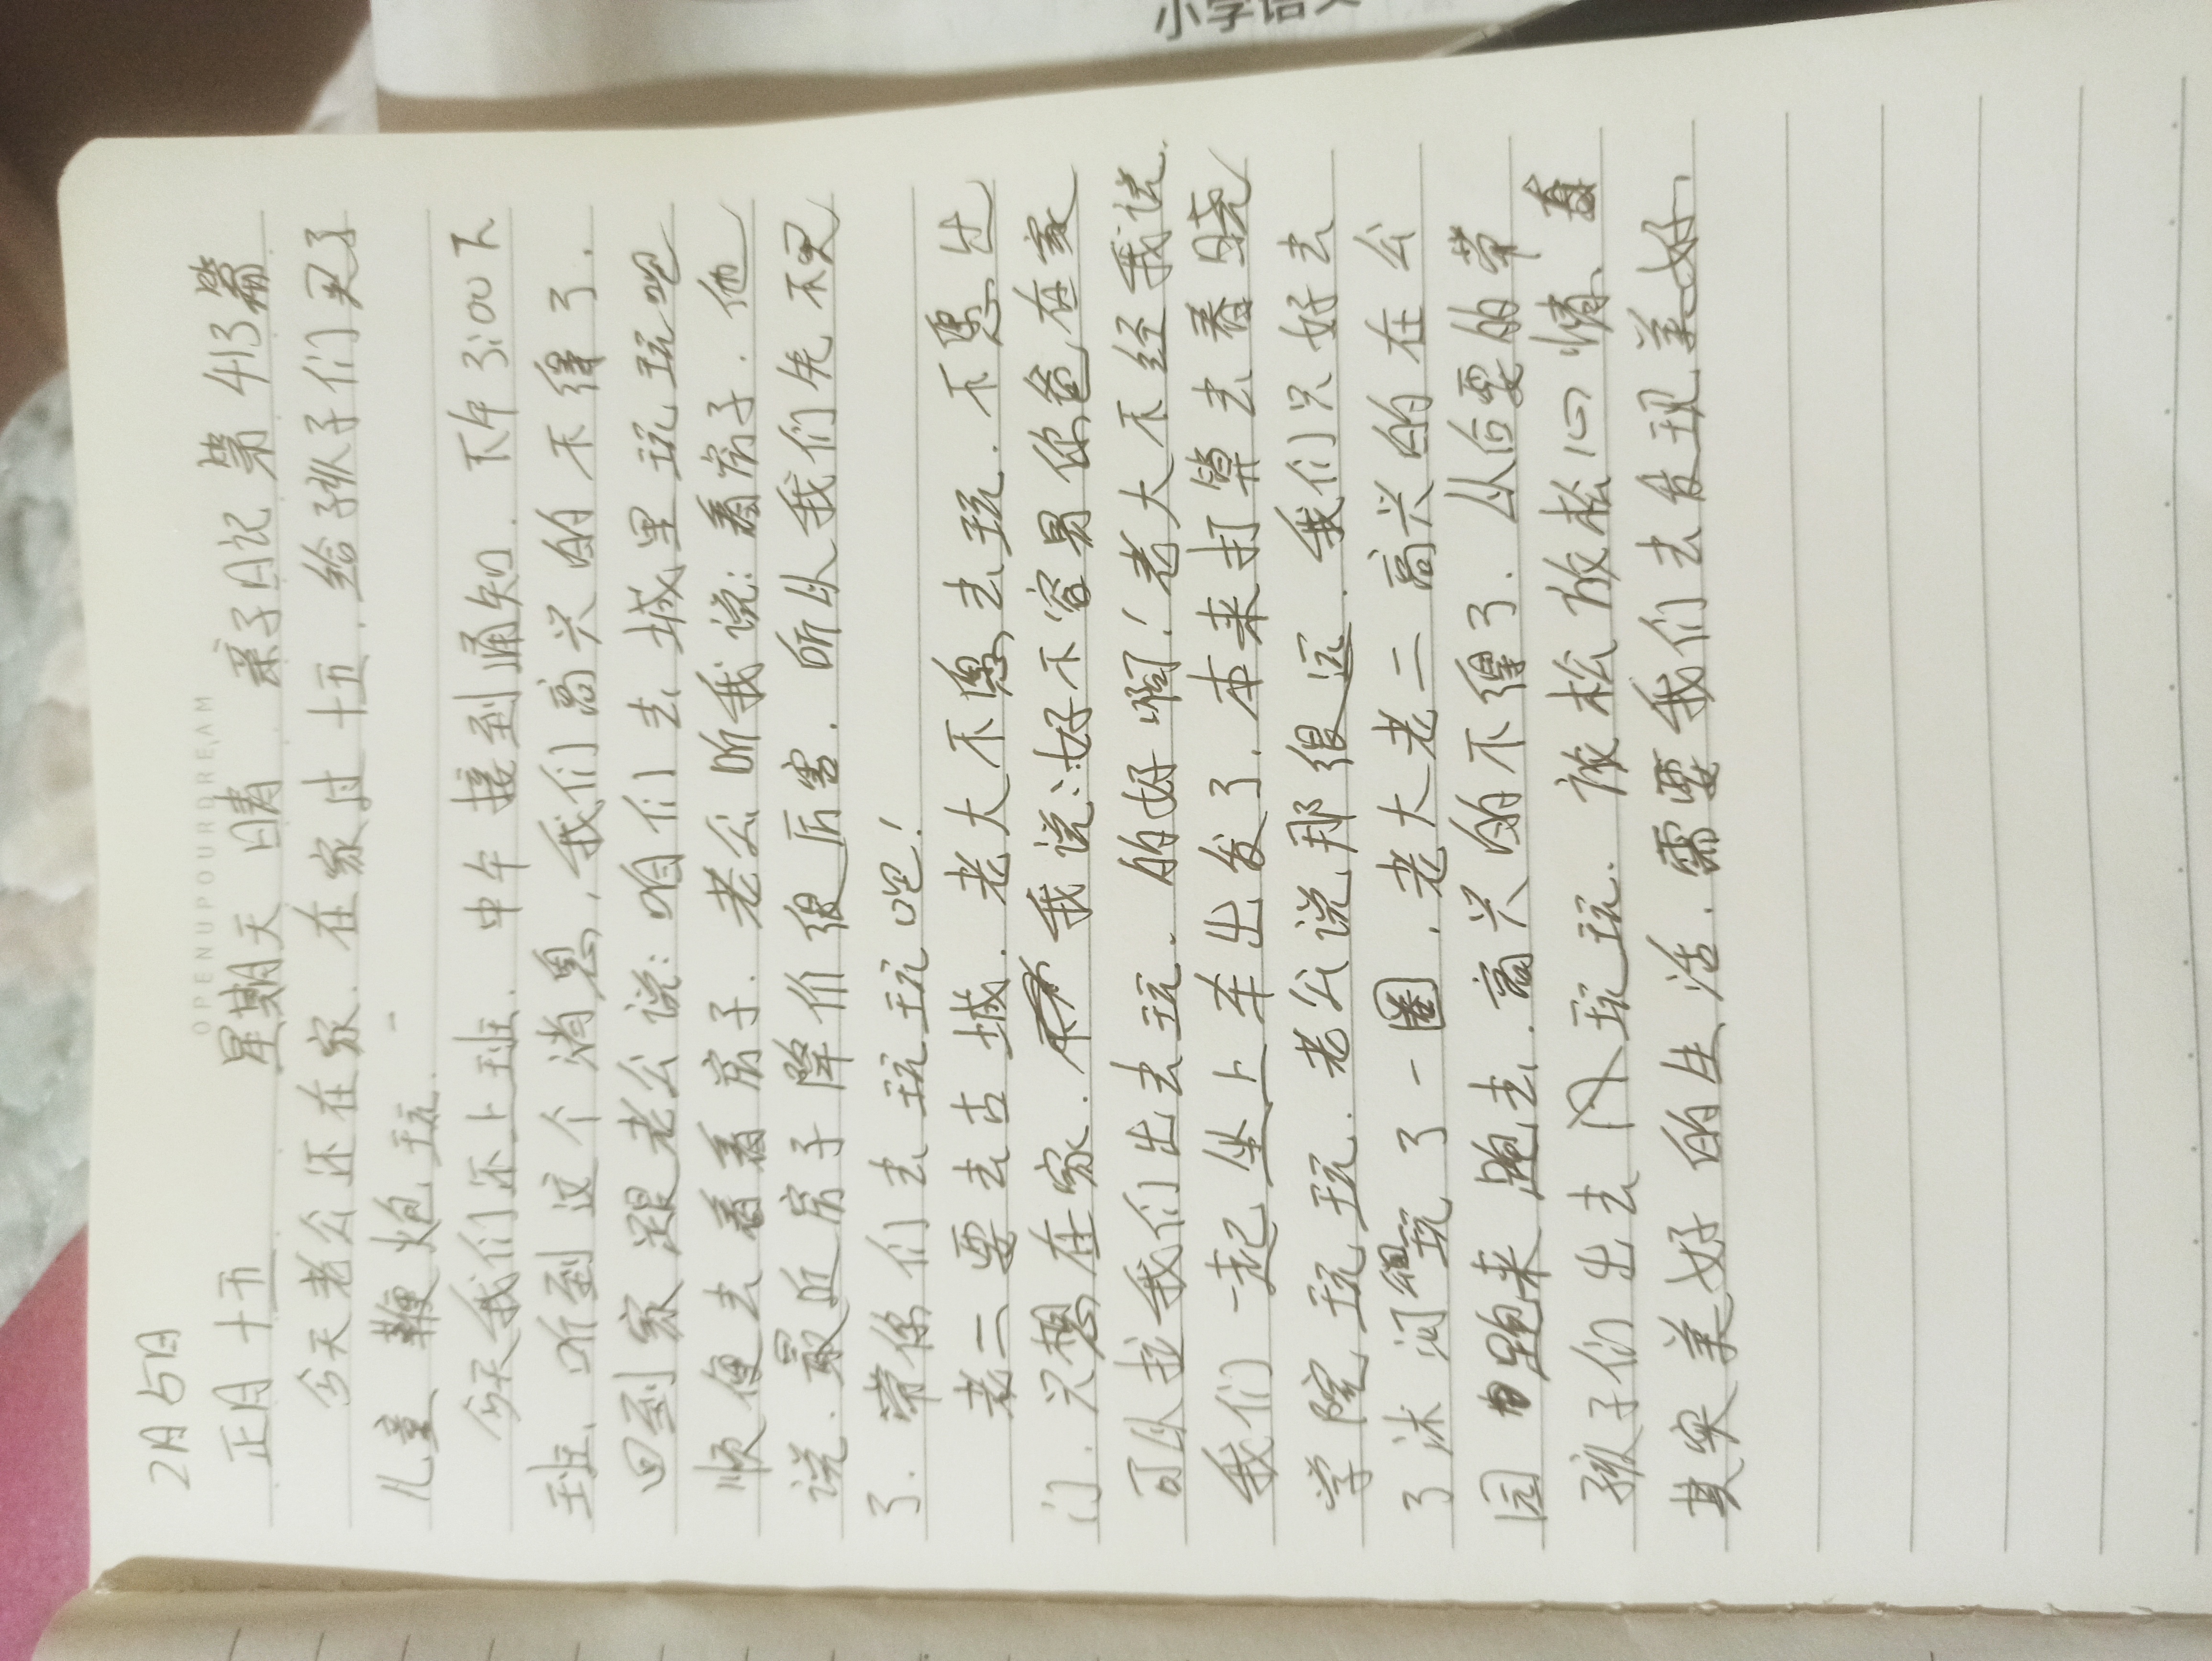 小学语文
OPENUPYOURDREAM
2月5日
正月十五 星期天 晴 亲子日记 第413篇
今天老公还在家.在家过十五.给孩子们买了
儿童鞭炮玩.
今天我们还上班.中午接到通知.下午3:00下
班.听到这个消息,我们高兴的不得了.
回到家跟老公说:咱们去城里玩玩吧
顺便去看看房子.老公听我说:看房子.他
说.最近房子降价很厉害.所以我们先不买
了.带你们去玩玩吧!
老二要去古城.老大不愿去玩.不愿出
门.只想在家.我说:好不容易你爸在家
可以拉我们出去玩.的好啊!老大不经我说.
我们一起坐上车出发了.本来打算去看晓
学院玩玩.老公说那很远.我们只好去
了沭河玩了一圈.老大老二高兴的在公
园跑来跑去.高兴的不得了.以后要的带
孩子们出去玩玩.放松放松心情.
其实美好的生活.需要我们去发现美好.